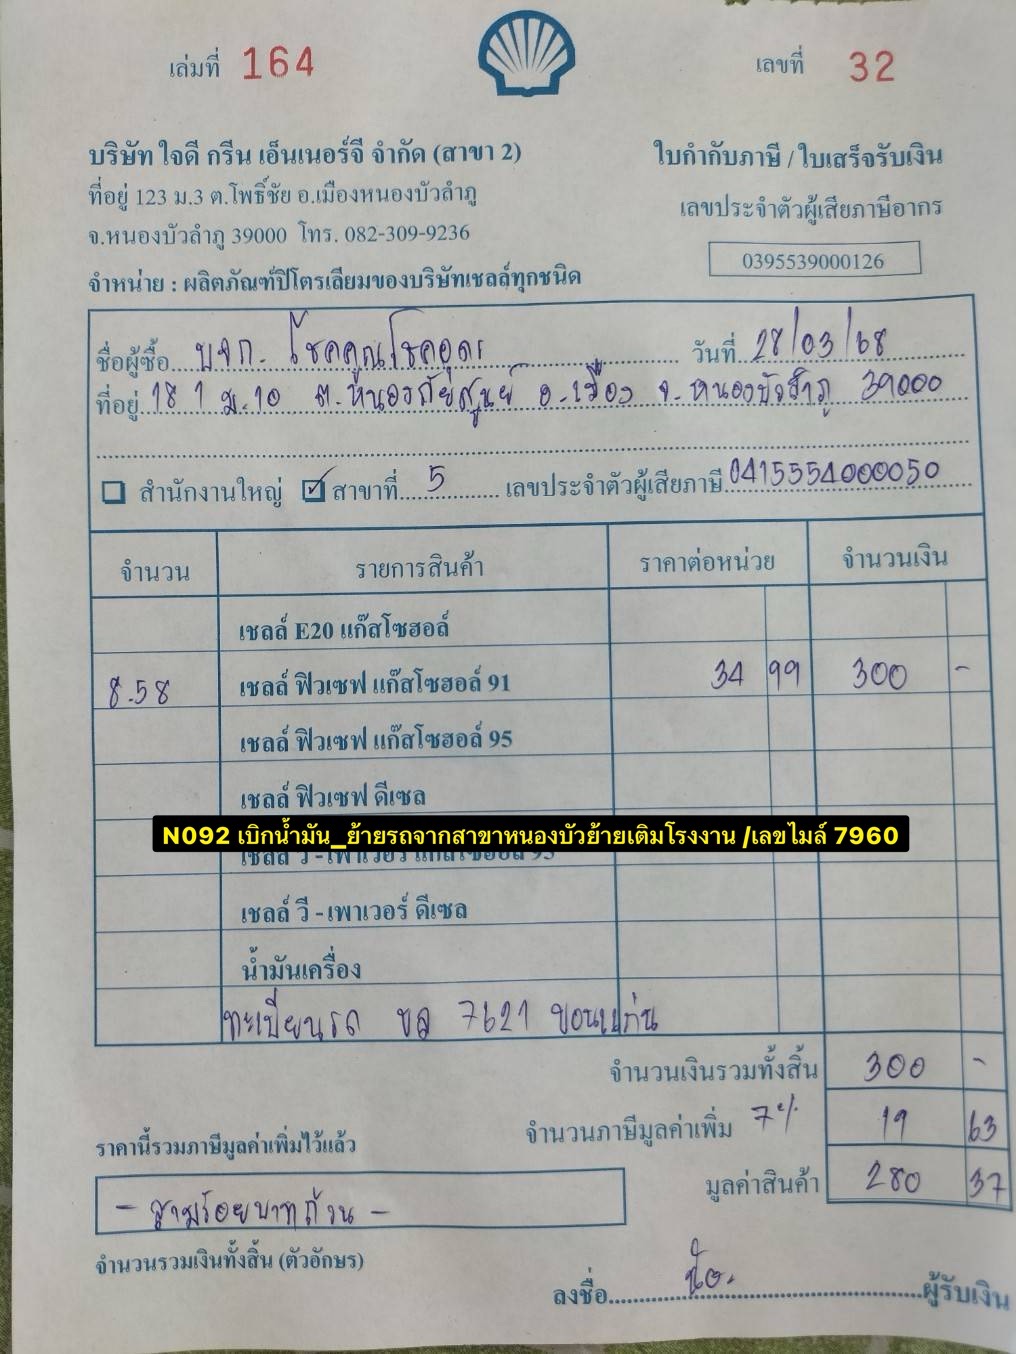 เล่มที่ 164
เลขที่ 32
บริษัท ใจดี กรีน เอ็นเนอร์จี จำกัด (สาขา 2)
ใบกำกับภาษี / ใบเสร็จรับเงิน
ที่อยู่ 123 ม.3 ต.โพธิ์ชัย อ.เมืองหนองบัวลำภู
เลขประจำตัวผู้เสียภาษีอากร
จ.หนองบัวลำภู 39000 โทร. 082-309-9236
0395539000126
จำหน่าย : ผลิตภัณฑ์ปิโตรเลียมของบริษัทเชลล์ทุกชนิด
ชื่อผู้ซื้อ บจก. โชคคูณโชคอุดร วันที่ 28/03/68
ที่อยู่ 181 ม.10 ต.หนองภัยศูนย์ อ.เมือง จ.หนองบัวลำภู 39000
สำนักงานใหญ่ สาขาที่ 5 เลขประจำตัวผู้เสียภาษี 0415554000050
จำนวน รายการสินค้า ราคาต่อหน่วย จำนวนเงิน
เชลล์ E20 แก๊สโซฮอล์
8.58 เชลล์ ฟิวเซฟ แก๊สโซฮอล์ 91 34 99 300 -
เชลล์ ฟิวเซฟ แก๊สโซฮอล์ 95
เชลล์ ฟิวเซฟ ดีเซล
N092 เบิกน้ำมัน_ย้ายรถจากสาขาหนองบัวย้ายเติมโรงงาน /เลขไมล์ 7960
เชลล์ วี - เพาเวอร์ แก๊สโซฮอล์ 95
เชลล์ วี - เพาเวอร์ ดีเซล
น้ำมันเครื่อง
ทะเบียนรถ ขล 7621 ขอนแก่น
จำนวนเงินรวมทั้งสิ้น 300 -
จำนวนภาษีมูลค่าเพิ่ม 7% 19 63
ราคานี้รวมภาษีมูลค่าเพิ่มไว้แล้ว
มูลค่าสินค้า 280 37
- สามร้อยบาทถ้วน -
จำนวนรวมเงินทั้งสิ้น (ตัวอักษร)
ลงชื่อ ผู้รับเงิน